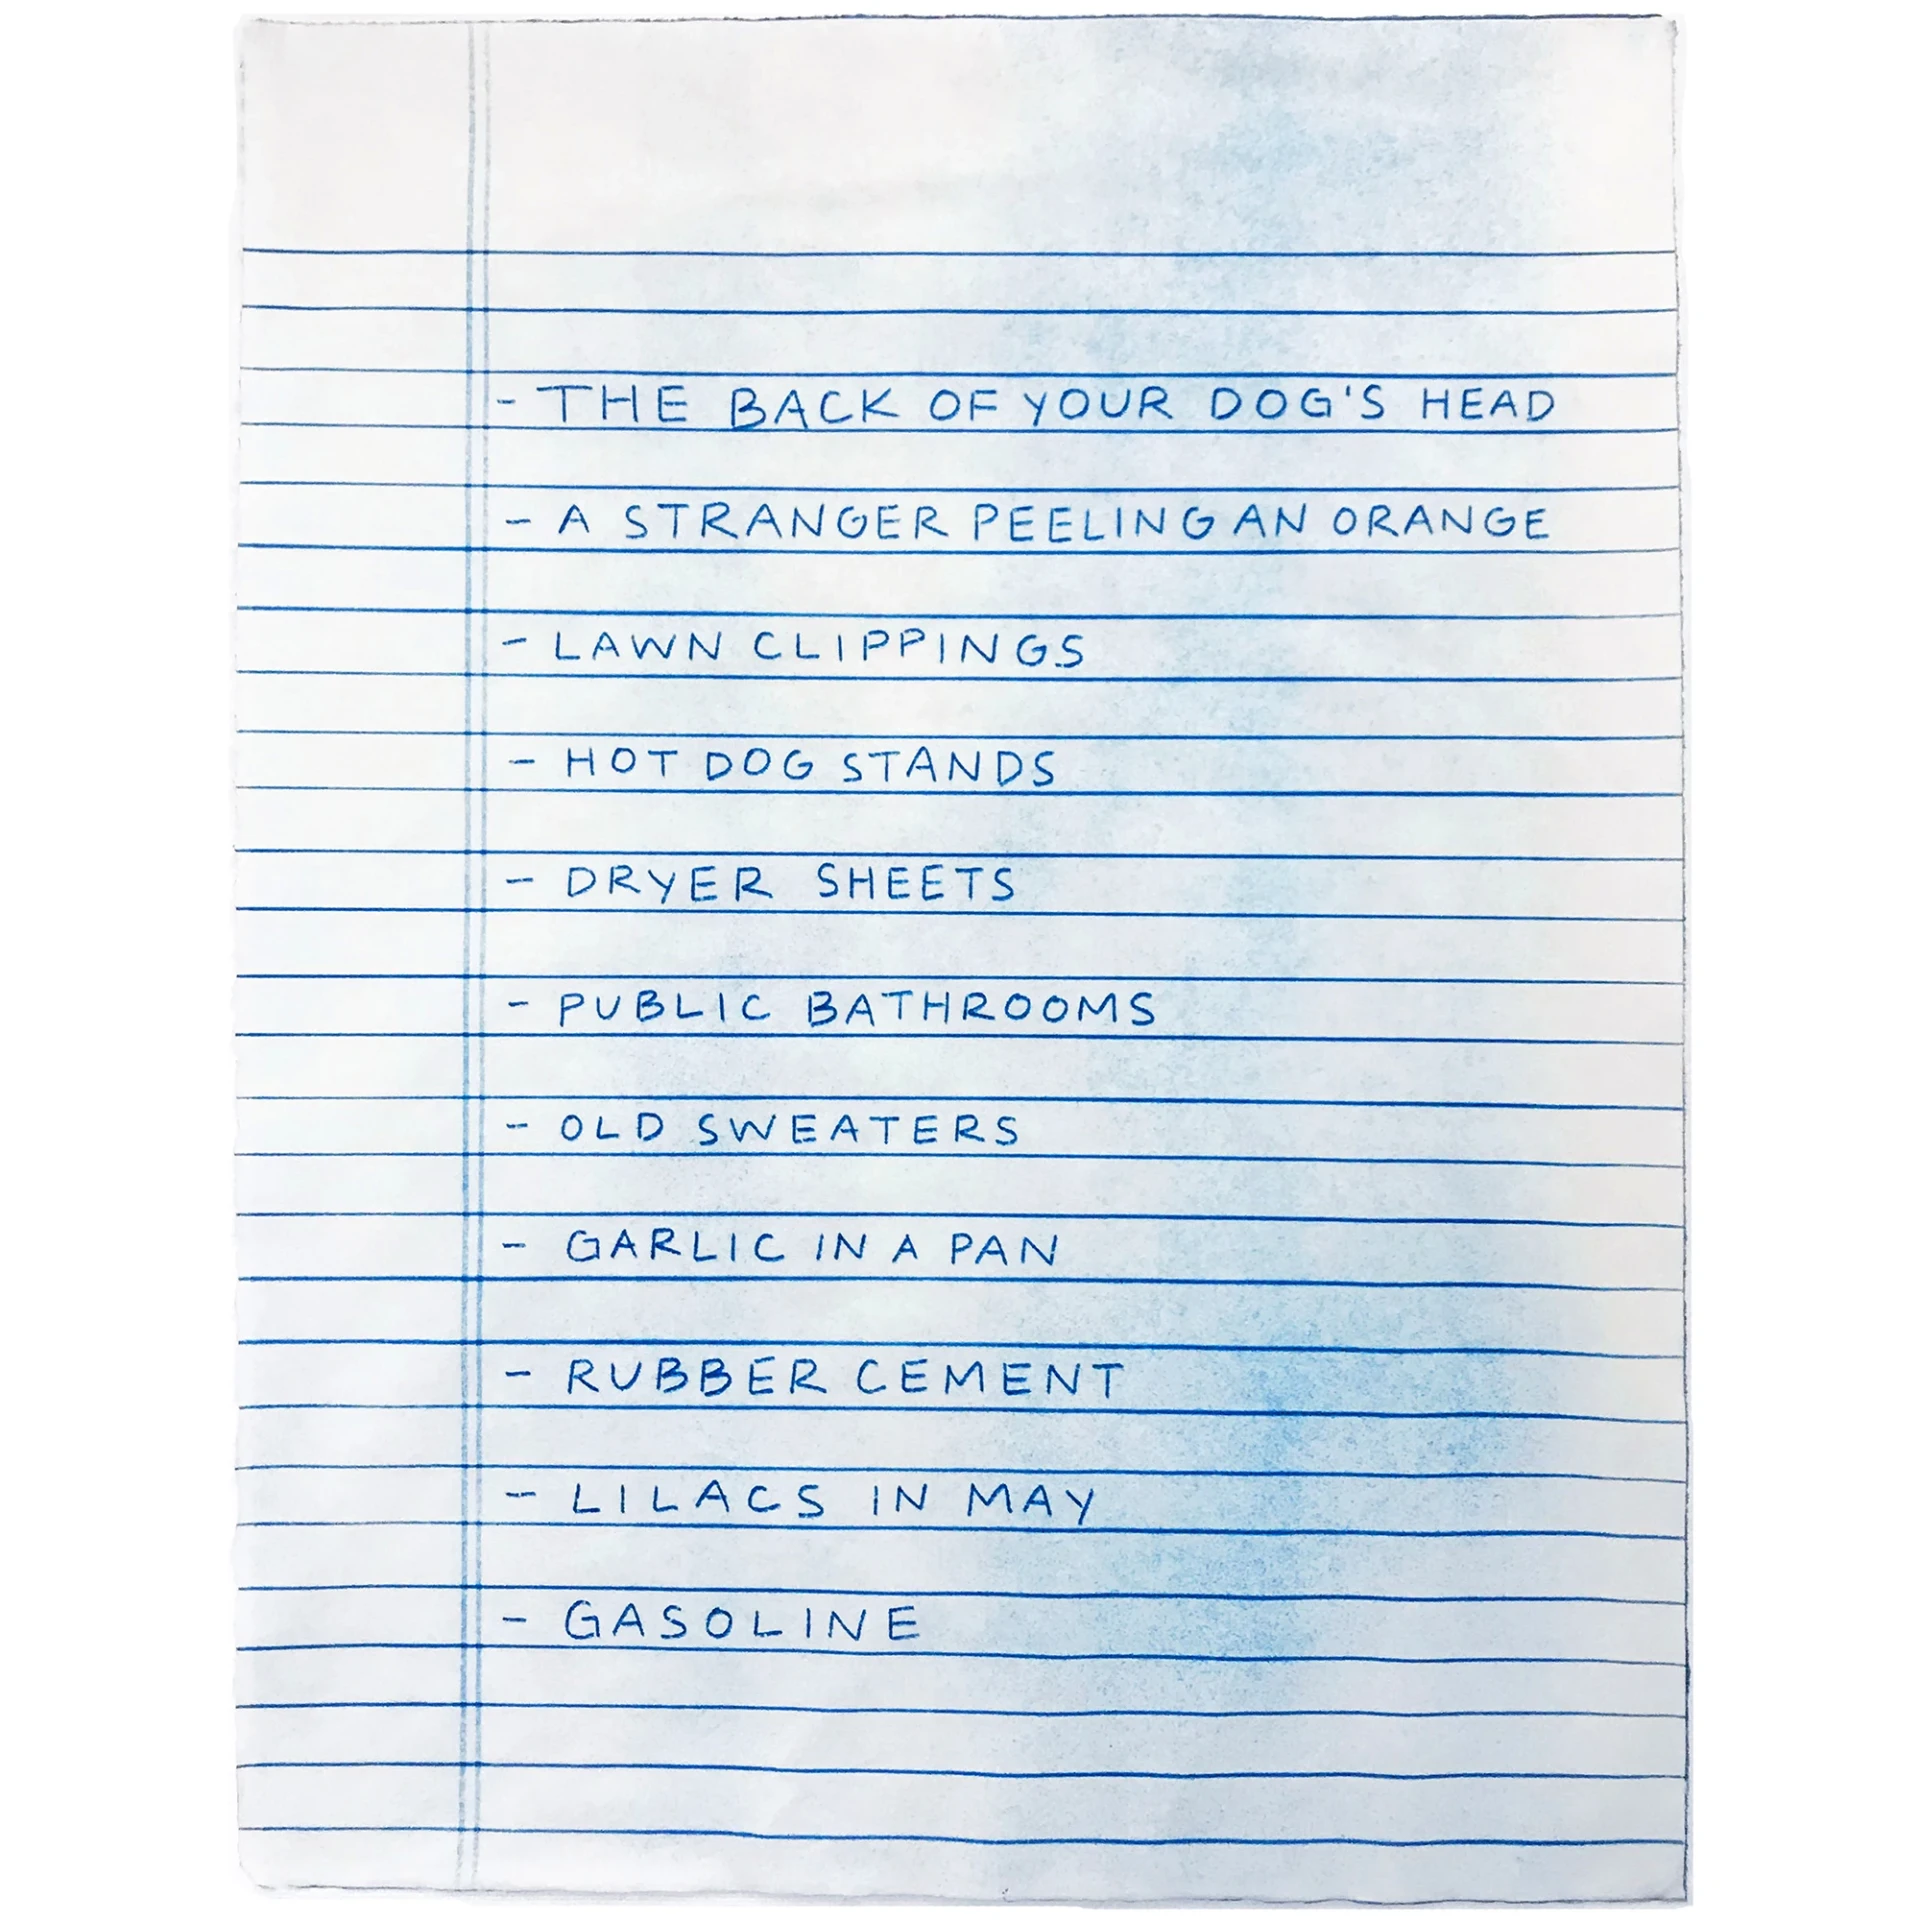 - THE BACK OF YOUR DOG'S HEAD
- A STRANGER PEELING AN ORANGE
- LAWN CLIPPINGS
- HOT DOG STANDS
- DRYER SHEETS
- PUBLIC BATHROOMS
- OLD SWEATERS
- GARLIC IN A PAN
- RUBBER CEMENT
- LILACS IN MAY
- GASOLINE